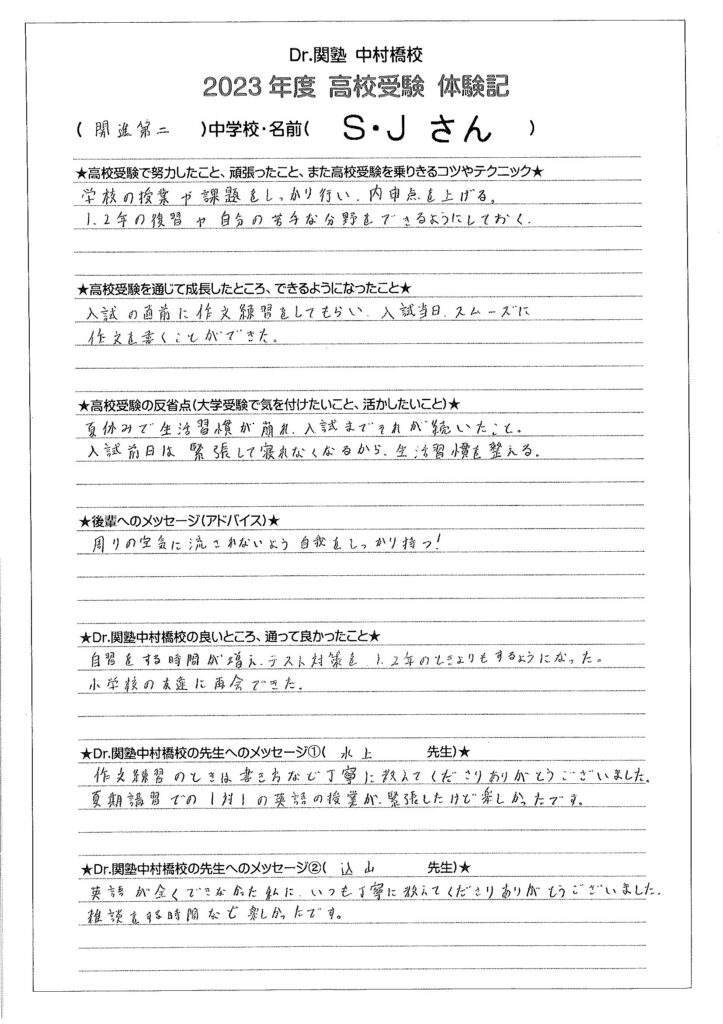 Dr.関塾 中村橋校
2023年度 高校受験 体験記
( 開進第二 )中学校・名前( S・J さん )
★高校受験で努力したこと、頑張ったこと、また高校受験を乗りきるコツやテクニック★
学校の授業や課題をしっかり行い、内申点を上げる。
1.2年の復習や自分の苦手な分野をできるようにしておく.
★高校受験を通じて成長したところ、できるようになったこと★
入試の直前に作文練習をしてもらい、入試当日、スムーズに
作文を書くことができた。
★高校受験の反省点(大学受験で気を付けたいこと、活かしたいこと)★
夏休みで生活習慣が崩れ、入試までそれが続いたこと。
入試前日は緊張して寝れなくなるから、生活習慣を整える。
★後輩へのメッセージ(アドバイス)★
周りの空気に流されないよう自我をしっかり持つ!
★Dr.関塾中村橋校の良いところ、通って良かったこと★
自習をする時間が増え、テスト対策を、1.2年のときよりもするようになった。
小学校の友達に再会できた。
★Dr.関塾中村橋校の先生へのメッセージ①( 水上 先生)★
作文練習のときは書き方など丁寧に教えてくださりありがとうございました。
夏期講習での1対1の英語の授業が、緊張したけど楽しかったです。
★Dr.関塾中村橋校の先生へのメッセージ②( 込山 先生)★
英語が全くできなかった私に、いつも丁寧に教えてくださりありがとうございました。
雑談をする時間など楽しかったです。